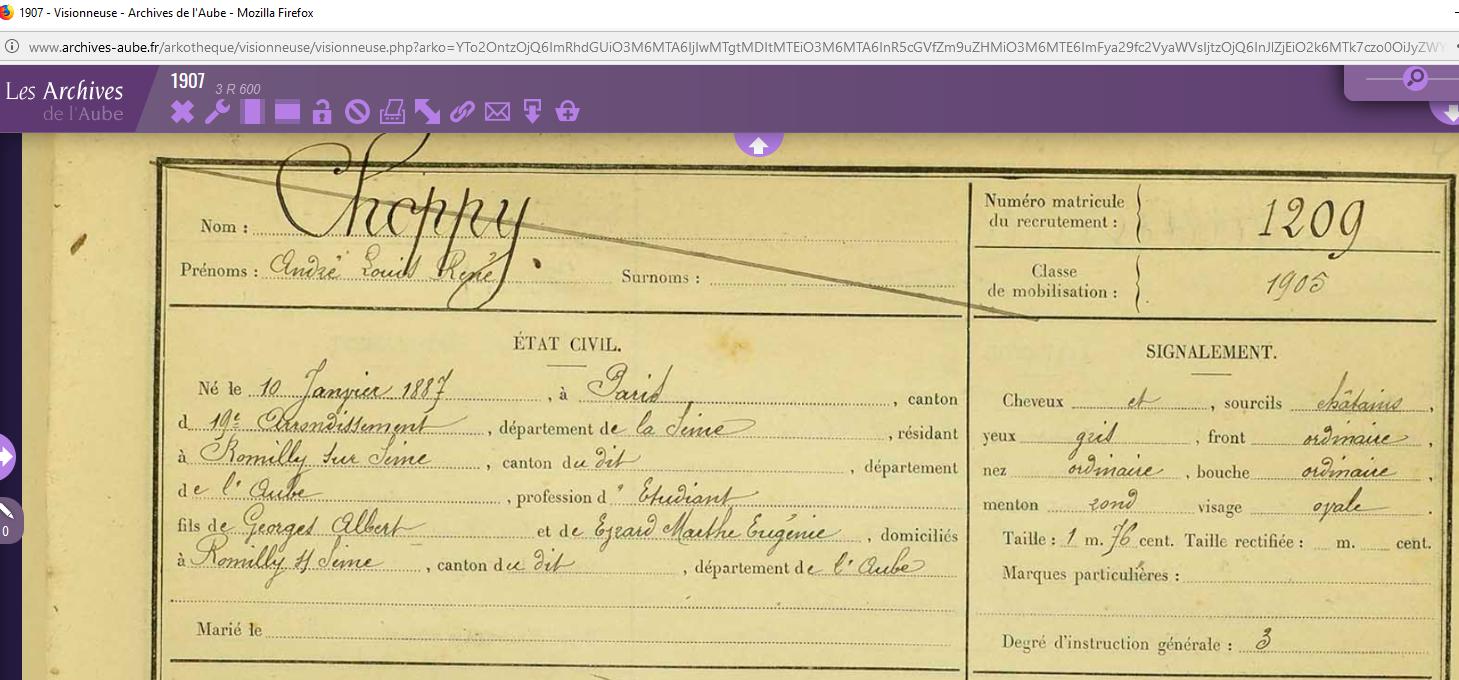 1907 - Visionneuse - Archives de l'Aube - Mozilla Firefox
www.archives-aube.fr/arkotheque/visionneuse/visionneuse.php?arko=
Les Archives
de l'Aube
1907
3 R 600
Nom : Choppy
Prénoms : André Louis René
Surnoms :
Numéro matricule
du recrutement :
1209
Classe
de mobilisation :
1905
ÉTAT CIVIL.
Né le 10 Janvier 1887, à Paris, canton
d 19e Arrondissement, département de la Seine, résidant
à Romilly sur Seine, canton du dit, département
de l'Aube, profession d'Etudiant
fils de Georges Albert et de Marthe Eugénie, domiciliés
à Romilly s/ Seine, canton du dit, département de l'Aube
Marié le
SIGNALEMENT.
Cheveux et, sourcils châtains,
yeux gris, front ordinaire,
nez ordinaire, bouche ordinaire,
menton rond visage ovale.
Taille : 1 m. 76 cent. Taille rectifiée : m. cent.
Marques particulières :
Degré d'instruction générale : 3
0